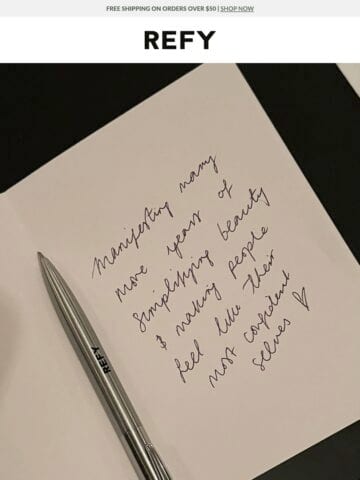 FREE SHIPPING ON ORDERS OVER $50 | SHOP NOW
REFY
manifesting many
more years of
simplifying beauty
& making people
feel like their
most confident
selves ♡
REFY